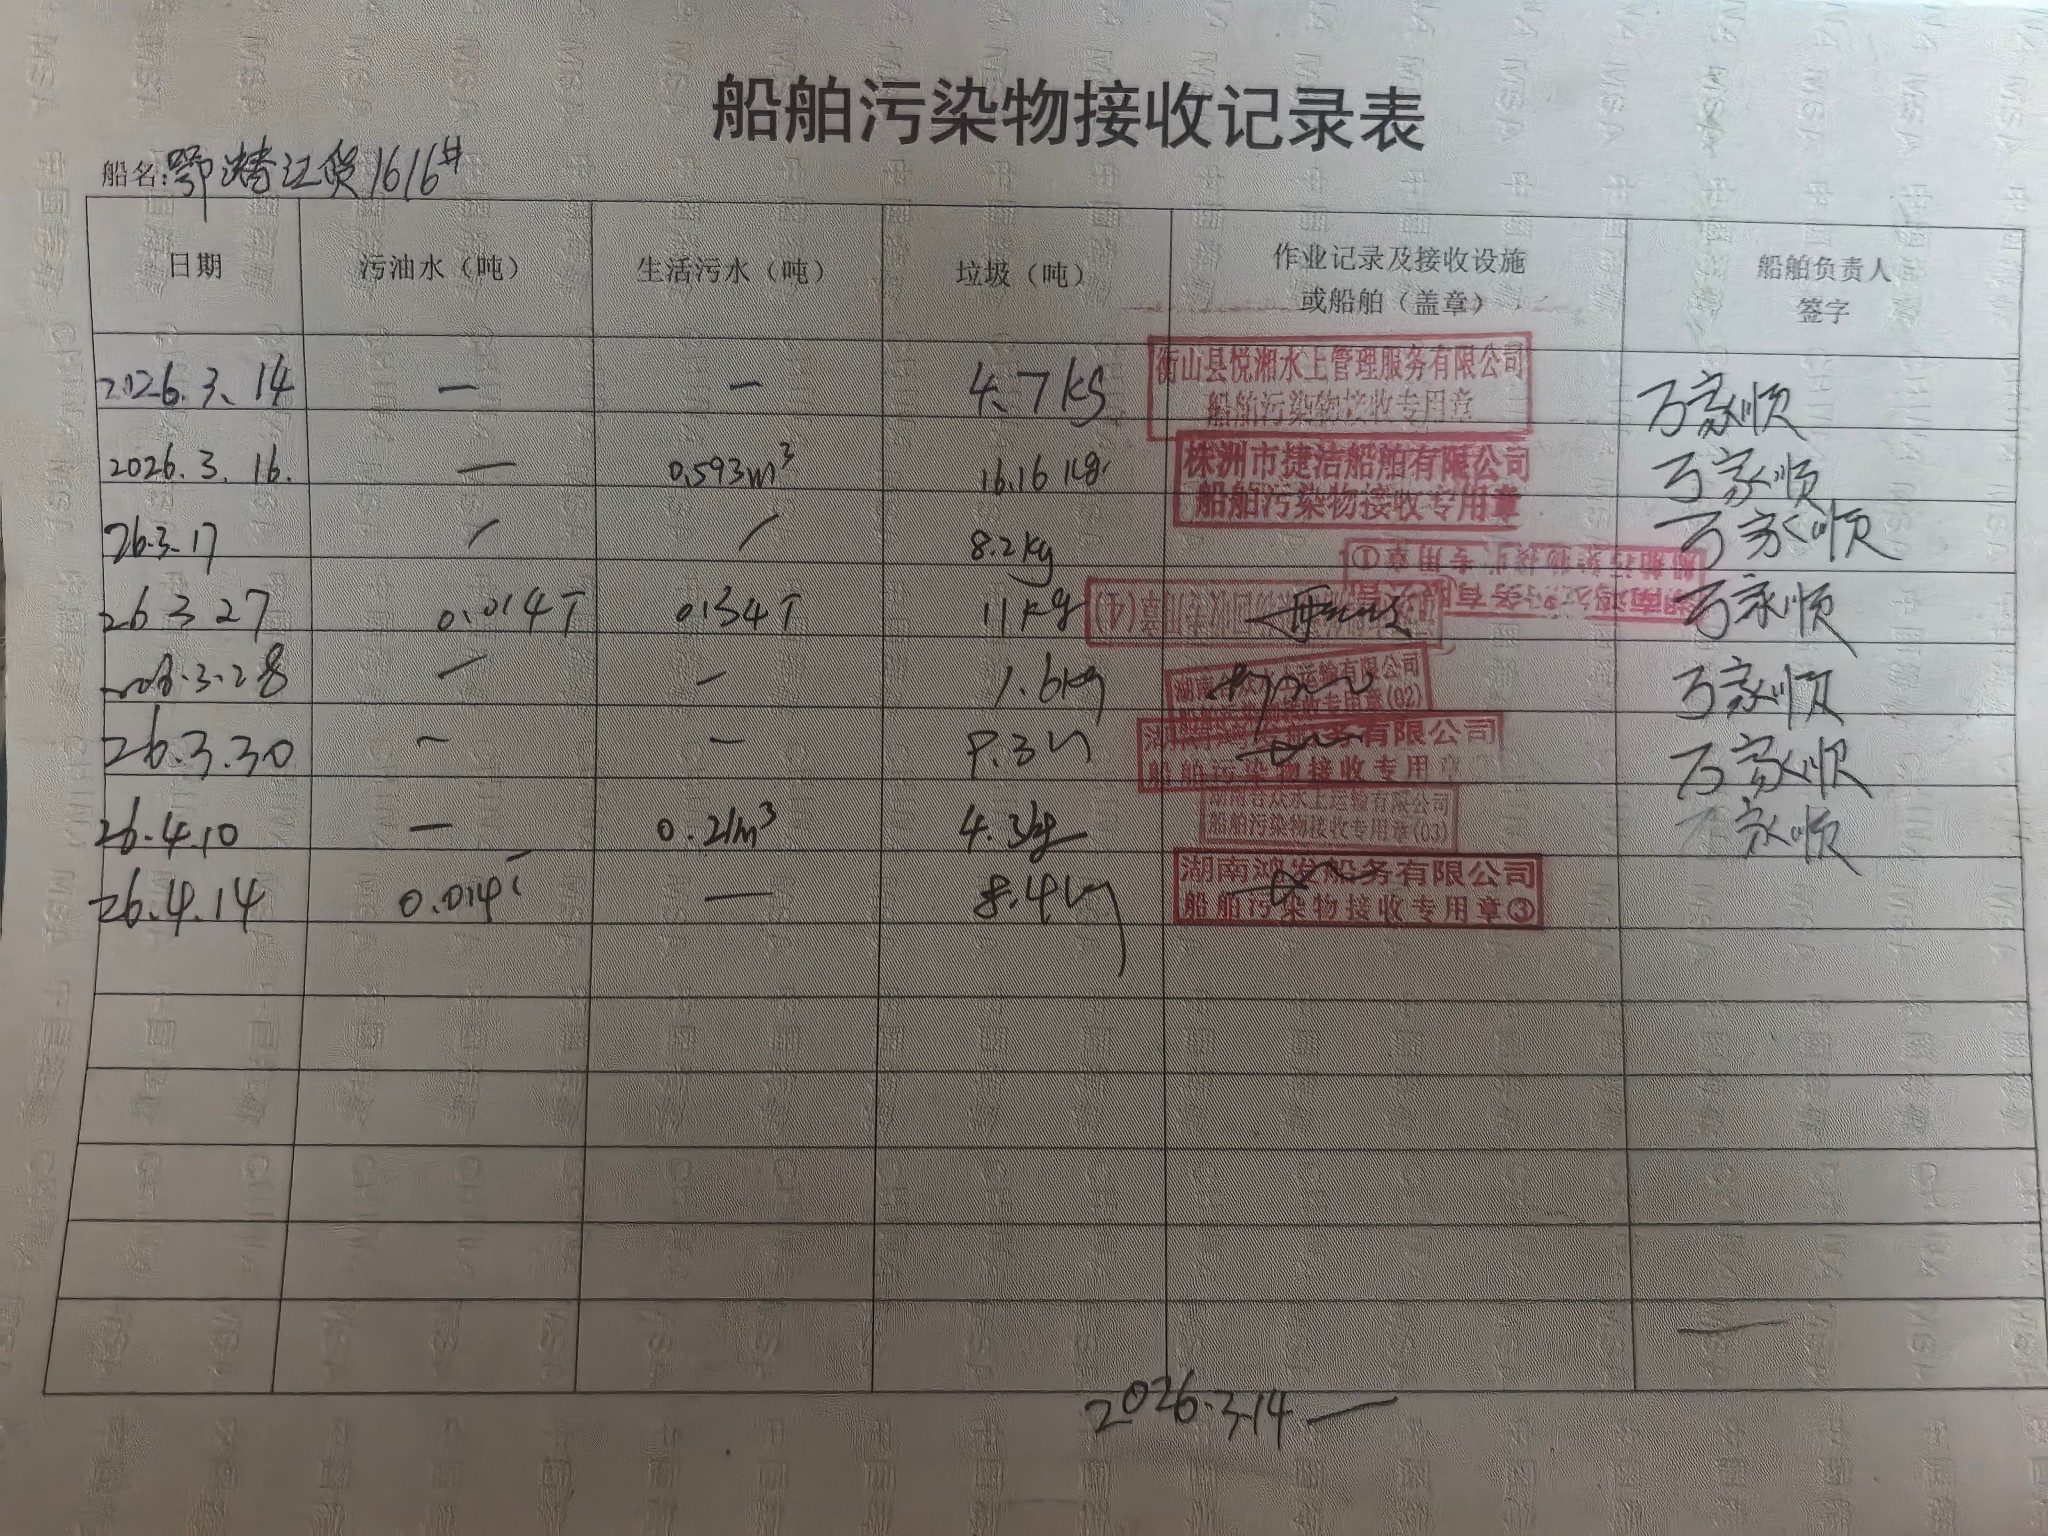 船舶污染物接收记录表
船名:鄂潜江货1616#
日期 污油水（吨） 生活污水（吨） 垃圾（吨） 作业记录及接收设施或船舶（盖章） 船舶负责人签字
2026.3.14 — — 4.7kg 衡山县悦湘水上管理服务有限公司 船舶污染物接收专用章 万家顺
2026.3.16. — 0.593m³ 16.16kg. 株洲市捷洁船舶有限公司 船舶污染物接收专用章 万家顺
26.3.17 / / 8.2kg 船舶污染物接收专用章① 万家顺
26 3 27 0.014T 0.134T 11kg 万家顺
3.28 — — 1.6kg 水上运输有限公司 接收专用章(02) 万家顺
26.3.30 — — 9.3 船务有限公司 船舶污染物接收专用章 万家顺
26.4.10 — 0.21m³ 4.3kg 水上运输有限公司 船舶污染物接收专用章(03) 家顺
26.4.14 0.014T — 8.4kg 湖南鸿发船务有限公司 船舶污染物接收专用章③
2026.3.14 —